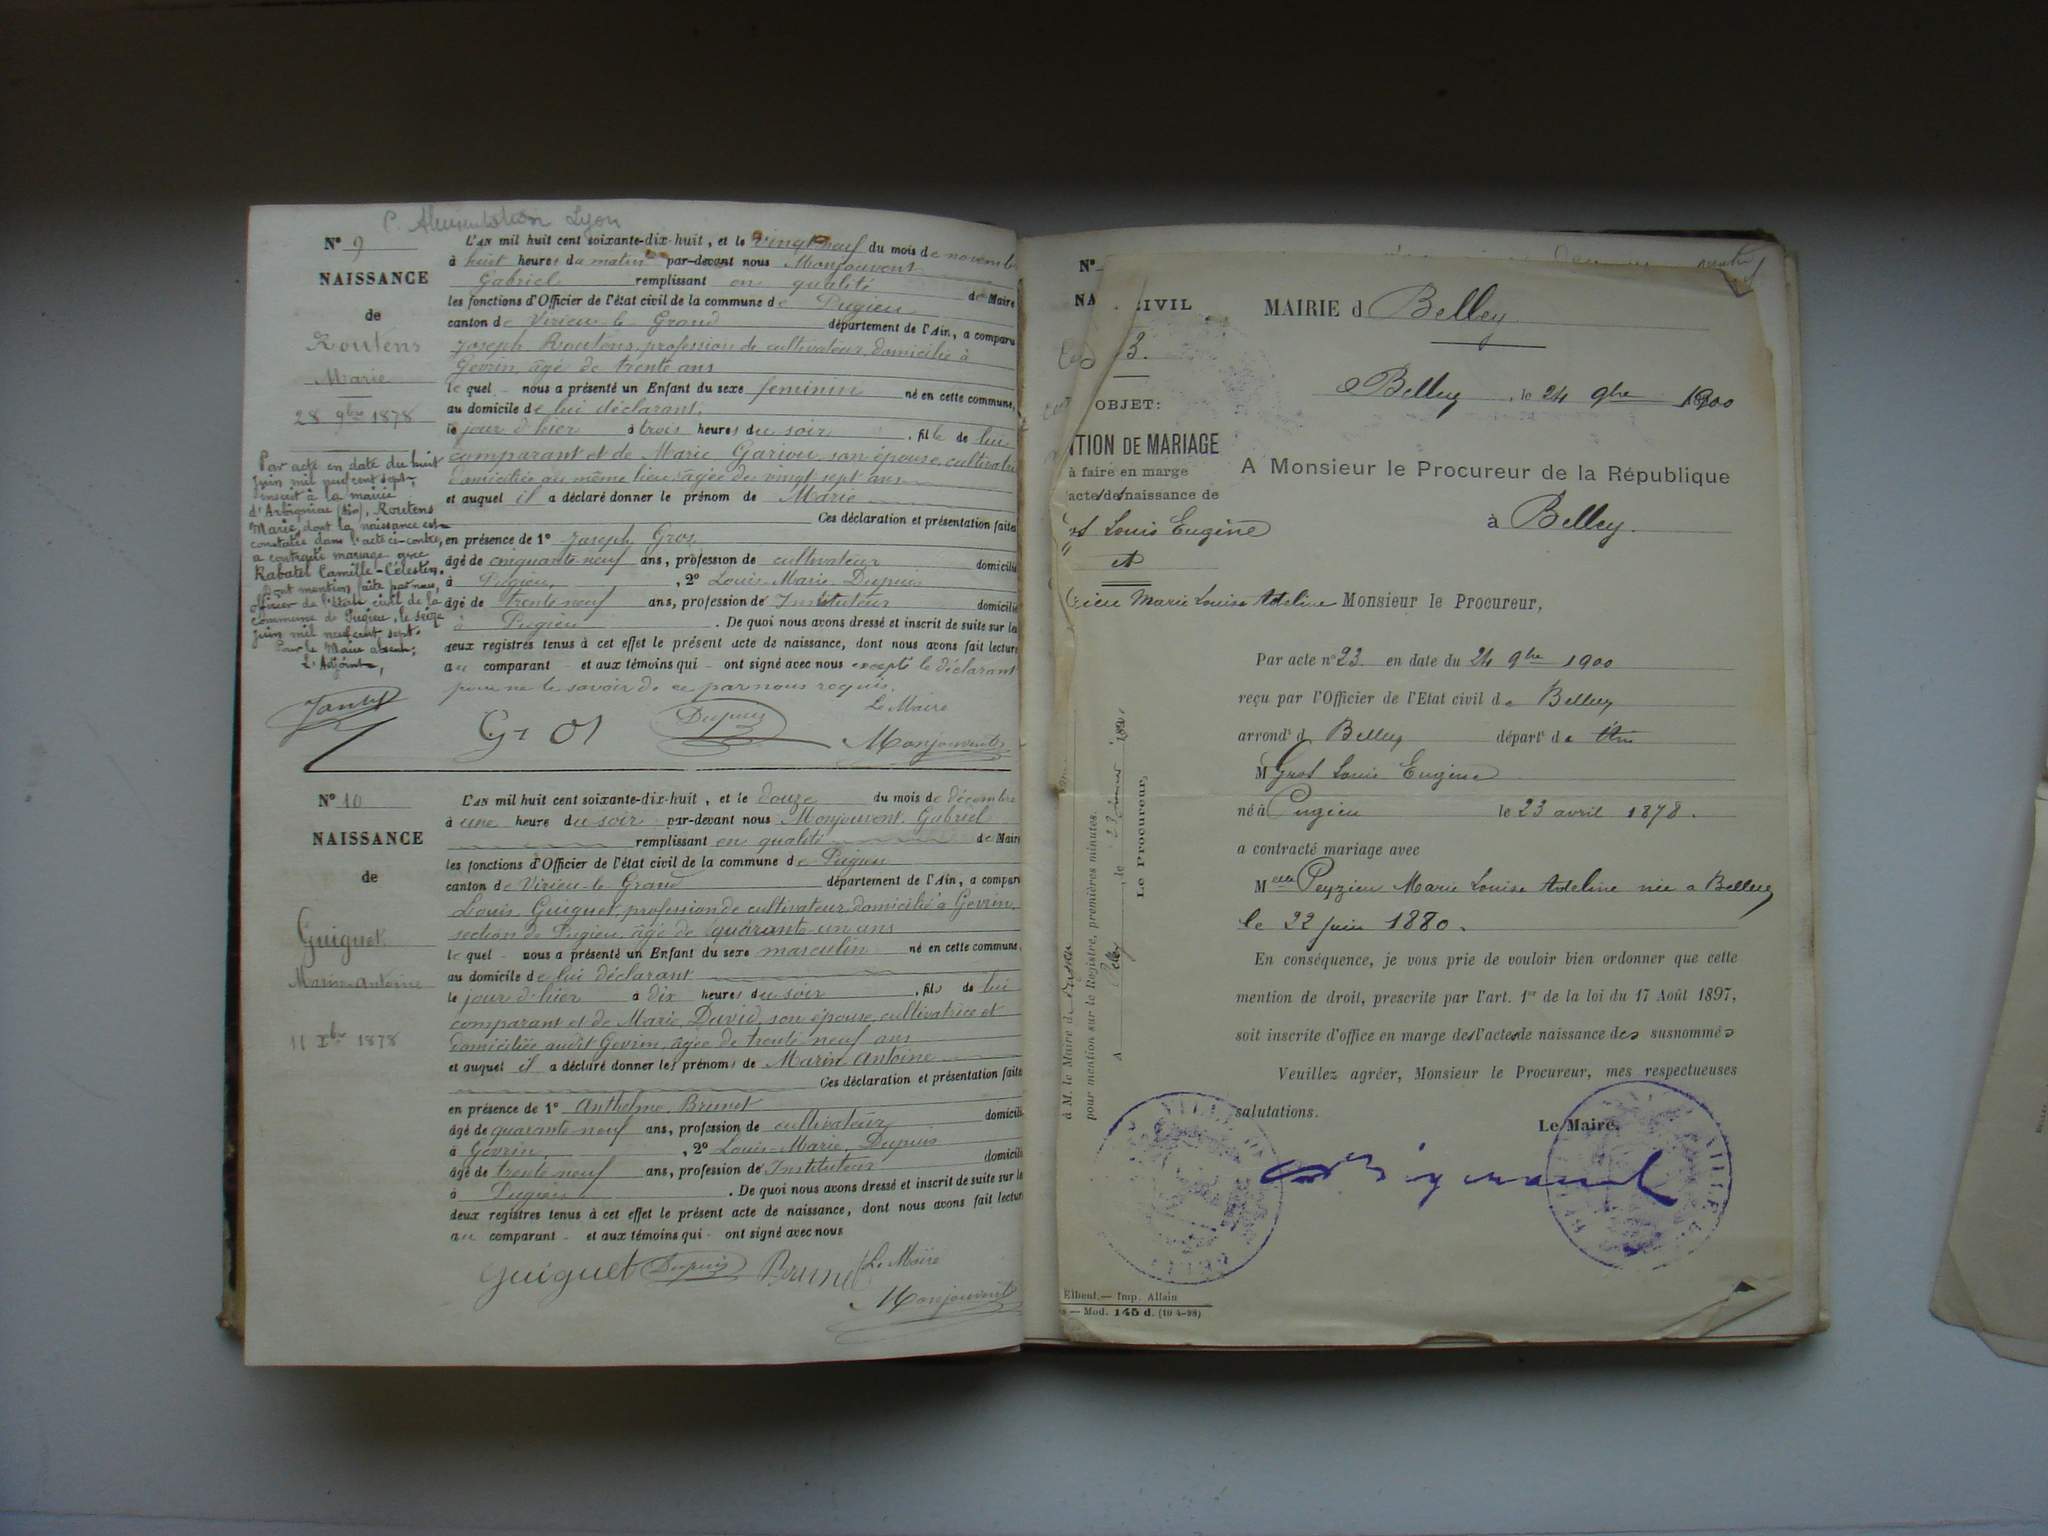 Lyon
N° 9
NAISSANCE
de
Routens
Marie
28 9bre 1878
Par acte en date du huit
juin mil neuf cent sept,
inscrit à la mairie
d'Arbignieu (Ain), Routens
Marie, dont la naissance est
constatée dans l'acte ci-contre,
a contracté mariage avec
Rabatel Camille-Célestin.
Dont mention faite par nous,
officier de l'état civil de la
commune de Pugieu, le seize
juin mil neuf cent sept.
Pour le Maire absent;
L'Adjoint,
L'AN mil huit cent soixante-dix-huit, et le vingt neuf du mois de novembre
à huit heures du matin par-devant nous Monjouvent
Gabriel remplissant en qualité de Maire
les fonctions d'Officier de l'état civil de la commune de Pugieu
canton de Virieu-le Grand département de l'Ain, a comparu
Joseph Routens, profession de cultivateur, domicilié à
Gevrin, âgé de trente ans
lequel nous a présenté un Enfant du sexe féminin né en cette commune,
au domicile de lui déclarant,
le jour d'hier à trois heures du soir, fille de lui
comparant et de Marie Gariou son épouse, cultivatrice
domiciliée au même lieu, âgée de vingt sept ans
et auquel il a déclaré donner le prénom de Marie
Ces déclaration et présentation faites
en présence de 1° Joseph Gros
âgé de cinquante neuf ans, profession de cultivateur domicilié
à Pugieu, 2° Louis Marie Dupuis
âgé de trente neuf ans, profession de Instituteur domicilié
à Pugieu. De quoi nous avons dressé et inscrit de suite sur les
deux registres tenus à cet effet le présent acte de naissance, dont nous avons fait lecture
au comparant et aux témoins qui ont signé avec nous excepté le déclarant
pour ne le savoir de ce par nous requis.
Le Maire
Gros Dupuis Monjouvent
N° 10
NAISSANCE
de
Guiguet
Marin Antoine
11 Xbre 1878
L'AN mil huit cent soixante-dix-huit, et le douze du mois de décembre
à une heure du soir par-devant nous Monjouvent Gabriel
remplissant en qualité de Maire
les fonctions d'Officier de l'état civil de la commune de Pugieu
canton de Virieu-le Grand département de l'Ain, a comparu
Louis Guiguet, profession de cultivateur, domicilié à Gevrin,
section de Pugieu, âgé de quarante un ans
lequel nous a présenté un Enfant du sexe masculin né en cette commune,
au domicile de lui déclarant
le jour d'hier à dix heures du soir, fils de lui
comparant et de Marie David, son épouse, cultivatrice et
domiciliée audit Gevrin, âgée de trente neuf ans
et auquel il a déclaré donner les prénoms de Marin Antoine
Ces déclaration et présentation faites
en présence de 1° Anthelme Brunet
âgé de quarante neuf ans, profession de cultivateur domicilié
à Gevrin, 2° Louis Marie Dupuis
âgé de trente neuf ans, profession de Instituteur domicilié
à Pugieu. De quoi nous avons dressé et inscrit de suite sur les
deux registres tenus à cet effet le présent acte de naissance, dont nous avons fait lecture
au comparant et aux témoins qui ont signé avec nous
Guiguet Dupuis Brunet Le Maire
Monjouvent
N°
NA
CIVIL
3.
OBJET:
TION DE MARIAGE
à faire en marge
actes des naissance de
Louis Eugène
et
Marie Louise Adeline
MAIRIE d Belley
Belley, le 24 9bre 1900
A Monsieur le Procureur de la République
à Belley.
Monsieur le Procureur,
Par acte n° 23 en date du 24 9bre 1900
reçu par l'Officier de l'Etat civil de Belley
arrondt d Belley départt de Ain
M Grot Louis Eugène
né à Pugieu le 23 avril 1878.
a contracté mariage avec
Melle Peyzieu Marie Louise Adeline née a Belley
le 22 juin 1880.
En conséquence, je vous prie de vouloir bien ordonner que cette
mention de droit, prescrite par l'art. 1er de la loi du 17 Août 1897,
soit inscrite d'office en marge des actes de naissance des susnommés
Veuillez agréer, Monsieur le Procureur, mes respectueuses
salutations.
Le Maire,
à M. le Maire de
pour mention sur le Registre, premières minutes.
A Belley, le
Le Procureur,
Elbeuf.— Imp. Allain
— Mod. 145 d. (10 4-98)